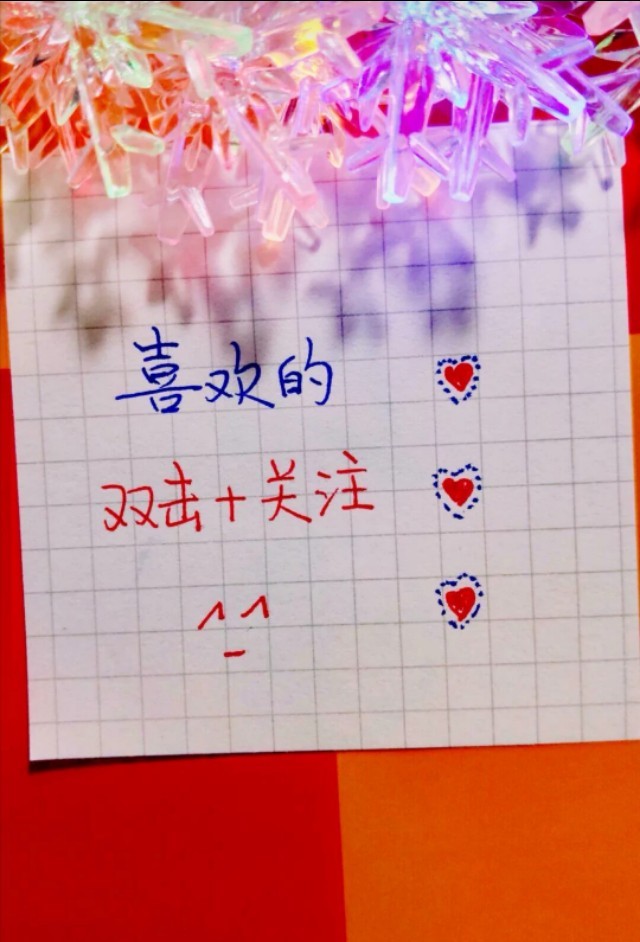 喜欢的
双击+关注
^ ^
-